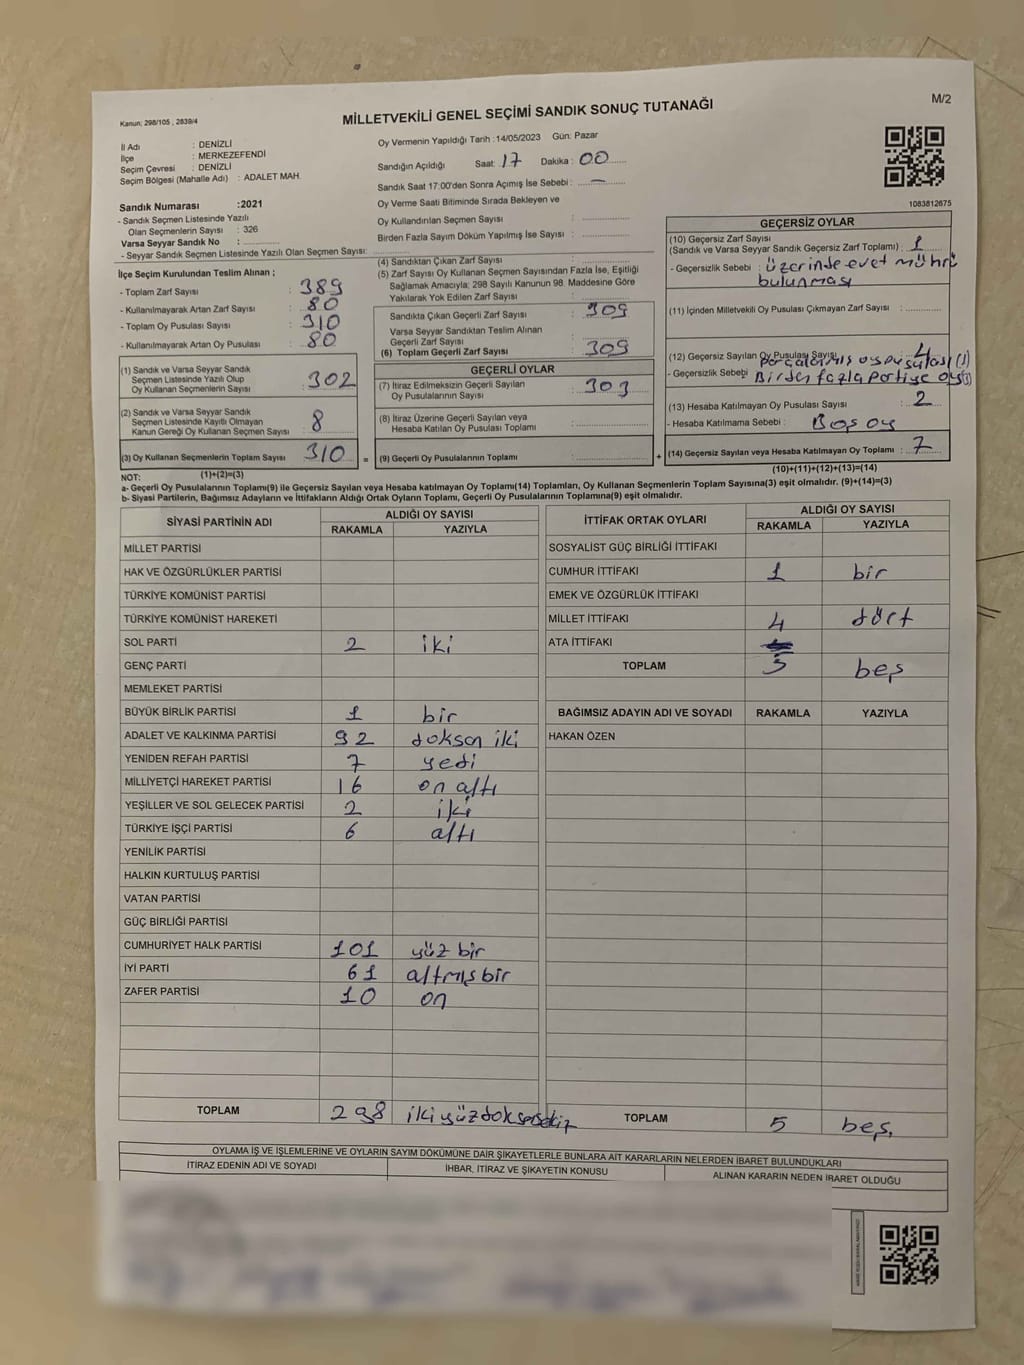 M/2
Kanun: 298/105 , 2839/4
MİLLETVEKİLİ GENEL SEÇİMİ SANDIK SONUÇ TUTANAĞI
İl Adı : DENİZLİ
İlçe : MERKEZEFENDİ
Seçim Çevresi : DENİZLİ
Seçim Bölgesi (Mahalle Adı) : ADALET MAH.
Oy Vermenin Yapıldığı Tarih : 14/05/2023 Gün: Pazar
Sandığın Açıldığı Saat: 17 Dakika : 00
Sandık Saat 17:00'den Sonra Açımış İse Sebebi : —
Oy Verme Saati Bitiminde Sırada Bekleyen ve
Oy Kullandırılan Seçmen Sayısı :
Birden Fazla Sayım Döküm Yapılmış İse Sayısı :
1083812675
Sandık Numarası :2021
- Sandık Seçmen Listesinde Yazılı
Olan Seçmenlerin Sayısı : 326
Varsa Seyyar Sandık No :
- Seyyar Sandık Seçmen Listesinde Yazılı Olan Seçmen Sayısı:
İlçe Seçim Kurulundan Teslim Alınan ;
- Toplam Zarf Sayısı : 389
- Kullanılmayarak Artan Zarf Sayısı : 80
- Toplam Oy Pusulası Sayısı : 310
- Kullanılmayarak Artan Oy Pusulası : 80
(1) Sandık ve Varsa Seyyar Sandık
Seçmen Listesinde Yazılı Olup
Oy Kullanan Seçmenlerin Sayısı : 302
(2) Sandık ve Varsa Seyyar Sandık
Seçmen Listesinde Kayıtlı Olmayan
Kanun Gereği Oy Kullanan Seçmen Sayısı : 8
(3) Oy Kullanan Seçmenlerin Toplam Sayısı : 310
(4) Sandıktan Çıkan Zarf Sayısı :
(5) Zarf Sayısı Oy Kullanan Seçmen Sayısından Fazla İse, Eşitliği
Sağlamak Amacıyla; 298 Sayılı Kanunun 98 Maddesine Göre
Yakılarak Yok Edilen Zarf Sayısı :
Sandıkta Çıkan Geçerli Zarf Sayısı : 309
Varsa Seyyar Sandıktan Teslim Alınan
Geçerli Zarf Sayısı :
(6) Toplam Geçerli Zarf Sayısı : 309
GEÇERLİ OYLAR
(7) İtiraz Edilmeksizin Geçerli Sayılan
Oy Pusulalarının Sayısı : 303
(8) İtiraz Üzerine Geçerli Sayılan veya
Hesaba Katılan Oy Pusulası Toplamı :
= (9) Geçerli Oy Pusulalarının Toplamı :
GEÇERSİZ OYLAR
(10) Geçersiz Zarf Sayısı
(Sandık ve Varsa Seyyar Sandık Geçersiz Zarf Toplamı) : 1
- Geçersizlik Sebebi : üzerinde evet mührü
bulunması
(11) İçinden Milletvekili Oy Pusulası Çıkmayan Zarf Sayısı :
(12) Geçersiz Sayılan Oy Pusulası Sayısı : 4
parçalanmış oy pusulası (1)
- Geçersizlik Sebebi : Birden fazla partiye oy (3)
(13) Hesaba Katılmayan Oy Pusulası Sayısı : 2
- Hesaba Katılmama Sebebi : Boş oy
+ (14) Geçersiz Sayılan veya Hesaba Katılmayan Oy Toplamı : 7
NOT: (1)+(2)=(3)
(10)+(11)+(12)+(13)=(14)
a- Geçerli Oy Pusulalarının Toplamı(9) ile Geçersiz Sayılan veya Hesaba katılmayan Oy Toplamı(14) Toplamları, Oy Kullanan Seçmenlerin Toplam Sayısına(3) eşit olmalıdır. (9)+(14)=(3)
b- Siyasi Partilerin, Bağımsız Adayların ve İttifakların Aldığı Ortak Oyların Toplamı, Geçerli Oy Pusulalarının Toplamına(9) eşit olmalıdır.
SİYASİ PARTİNİN ADI ALDIĞI OY SAYISI
RAKAMLA YAZIYLA
MİLLET PARTİSİ
HAK VE ÖZGÜRLÜKLER PARTİSİ
TÜRKİYE KOMÜNİST PARTİSİ
TÜRKİYE KOMÜNİST HAREKETİ
SOL PARTİ 2 iki
GENÇ PARTİ
MEMLEKET PARTİSİ
BÜYÜK BİRLİK PARTİSİ 1 bir
ADALET VE KALKINMA PARTİSİ 92 doksan iki
YENİDEN REFAH PARTİSİ 7 yedi
MİLLİYETÇİ HAREKET PARTİSİ 16 on altı
YEŞİLLER VE SOL GELECEK PARTİSİ 2 iki
TÜRKİYE İŞÇİ PARTİSİ 6 altı
YENİLİK PARTİSİ
HALKIN KURTULUŞ PARTİSİ
VATAN PARTİSİ
GÜÇ BİRLİĞİ PARTİSİ
CUMHURİYET HALK PARTİSİ 101 yüz bir
İYİ PARTİ 61 altmış bir
ZAFER PARTİSİ 10 on
TOPLAM 298 iki yüz doksan sekiz
İTTİFAK ORTAK OYLARI ALDIĞI OY SAYISI
RAKAMLA YAZIYLA
SOSYALİST GÜÇ BİRLİĞİ İTTİFAKI
CUMHUR İTTİFAKI 1 bir
EMEK VE ÖZGÜRLÜK İTTİFAKI
MİLLET İTTİFAKI 4 dört
ATA İTTİFAKI
TOPLAM 5 beş
BAĞIMSIZ ADAYIN ADI VE SOYADI RAKAMLA YAZIYLA
HAKAN ÖZEN
TOPLAM 5 beş
OYLAMA İŞ VE İŞLEMLERİNE VE OYLARIN SAYIM DÖKÜMÜNE DAİR ŞİKAYETLERLE BUNLARA AİT KARARLARIN NELERDEN İBARET BULUNDUKLARI
İTİRAZ EDENİN ADI VE SOYADI İHBAR, İTİRAZ VE ŞİKAYETİN KONUSU ALINAN KARARIN NEDEN İBARET OLDUĞU